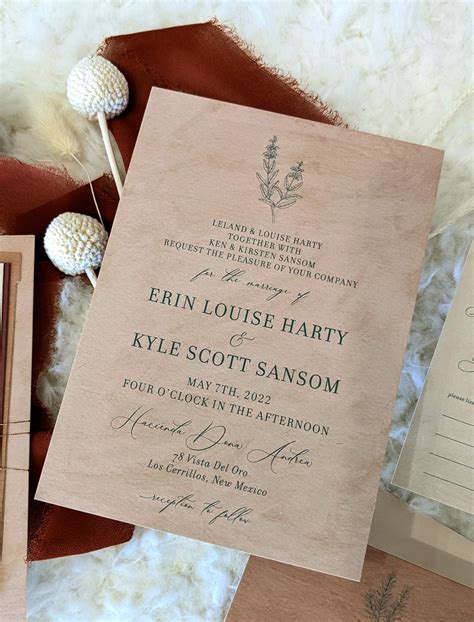 LELAND & LOUISE HARTY
TOGETHER WITH
KEN & KIRSTEN SANSOM
REQUEST THE PLEASURE OF YOUR COMPANY
for the marriage of
ERIN LOUISE HARTY
&
KYLE SCOTT SANSOM
MAY 7TH, 2022
FOUR O'CLOCK IN THE AFTERNOON
Hacienda Dona Andrea
78 Vista Del Oro
Los Cerrillos, New Mexico
reception to follow
please